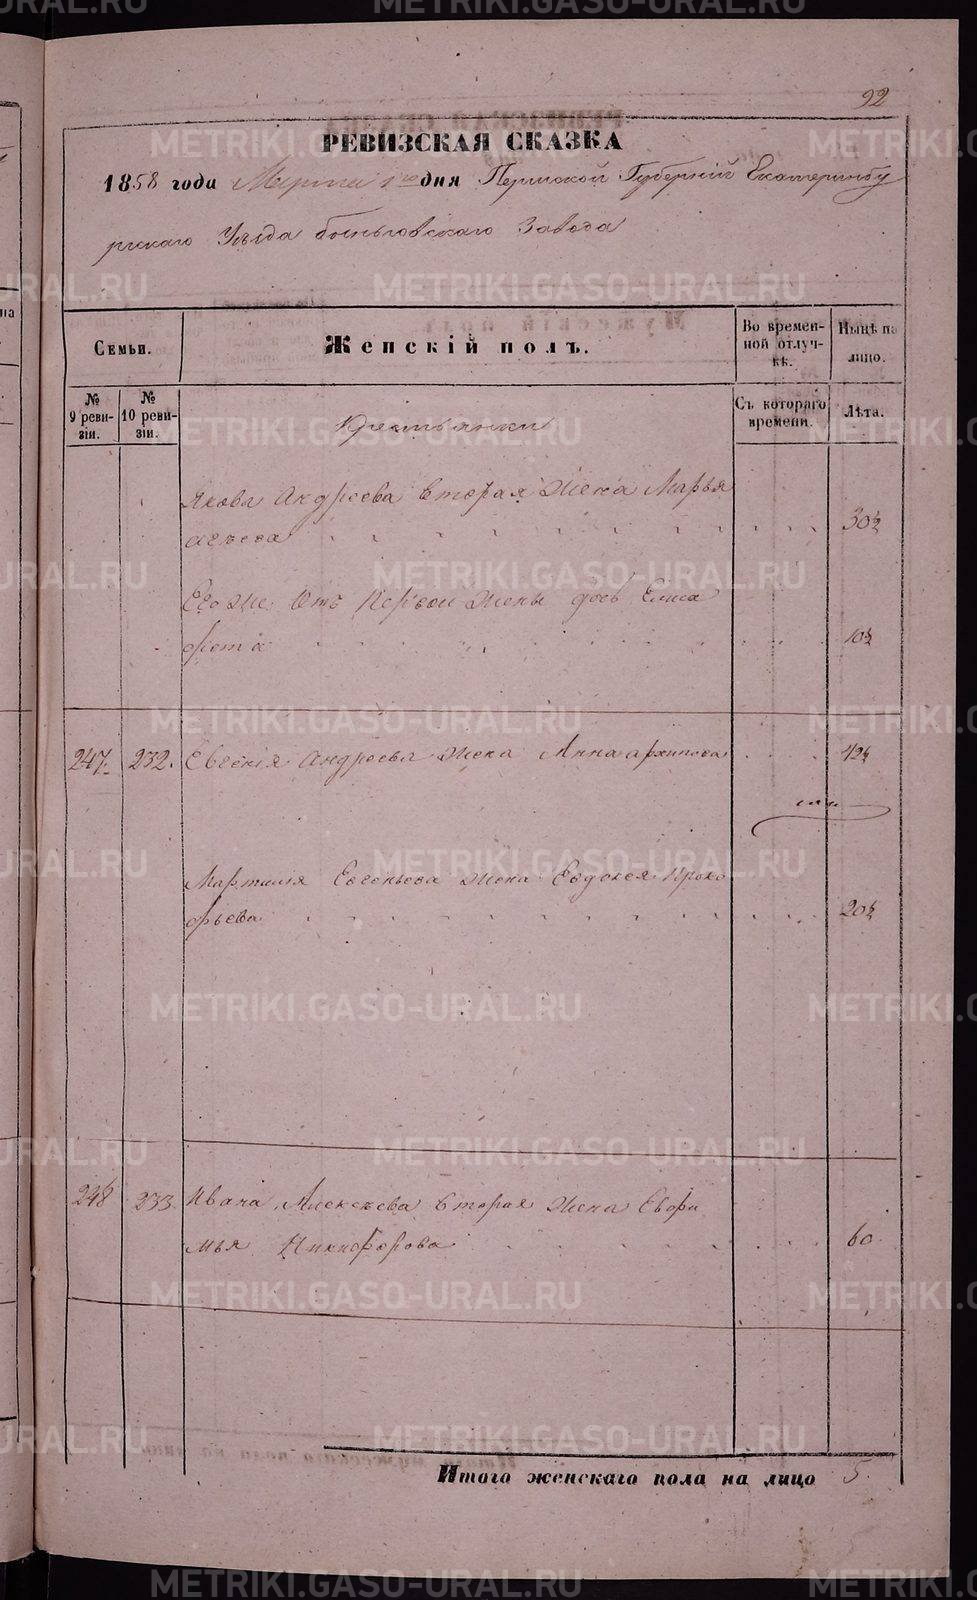 92
РЕВИЗСКАЯ СКАЗКА
1858 года Марта 1го дня Пермской Губерніи Екатеринбу
ргскаго Уѣзда Воньговскаго Завода
Семьи.
Женскій полъ.
Во времен-
ной отлуч-
кѣ.
Нынѣ на
лицо.
№
9 реви-
зіи.
№
10 реви-
зіи.
Крестьянки
Съ котораго
времени.
Лѣта.
Якова Андреева вторая жена Марья
30½
Его же отъ первой жены дочь Елиса
фета 10½
247. 232. Евгенія Андреева жена Анна Архипова 42½
Мартиміяна Евгеньева жена Евдокея Проко
фьева 20½
248 233. Ивана Алексѣева вторая жена Евфи
мья Никифорова 60
Итого женскаго пола на лицо 5
METRIKI.GASO-URAL.RU